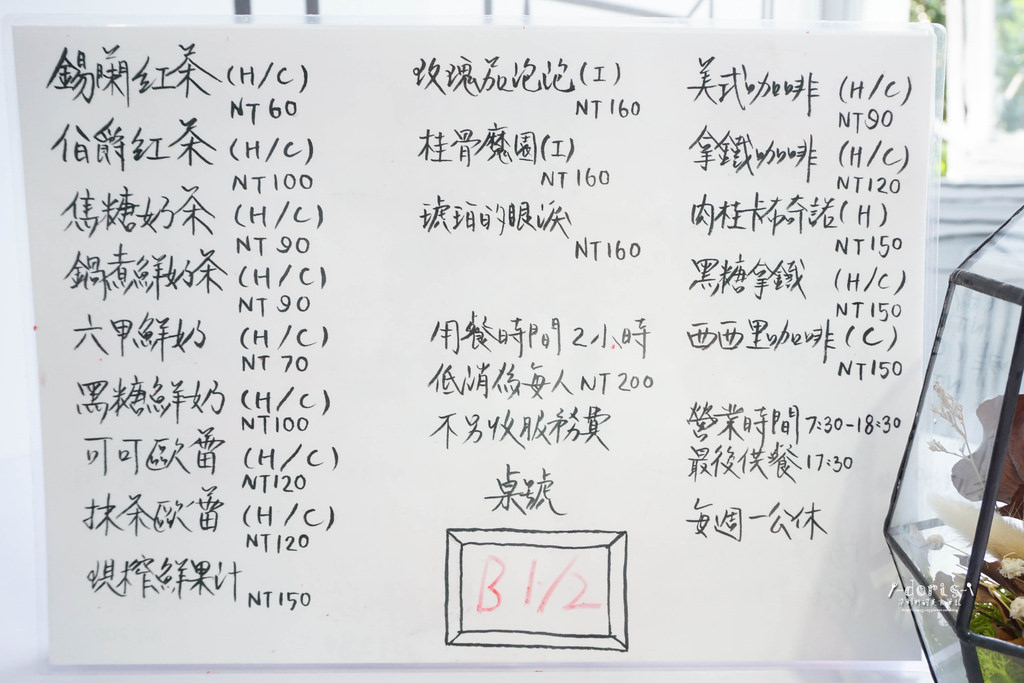 錫蘭紅茶(H/C)
NT60
伯爵紅茶(H/C)
NT100
焦糖奶茶(H/C)
NT90
鍋煮鮮奶茶(H/C)
NT90
六甲鮮奶 (H/C)
NT70
黑糖鮮奶 (H/C)
NT100
可可歐蕾 (H/C)
NT120
抹茶歐蕾 (H/C)
NT120
現榨鮮果汁
NT150
玫瑰茄泡泡(I)
NT160
桂骨魔園(I)
NT160
琥珀的眼淚
NT160
用餐時間2小時
低消係每人NT200
不另收服務費
桌號
B1/2
美式咖啡 (H/C)
NT90
拿鐵咖啡 (H/C)
NT120
肉桂卡布奇諾(H)
NT150
黑糖拿鐵 (H/C)
NT150
西西里咖啡(C)
NT150
營業時間7:30-18:30
最後供餐17:30
每週一公休
doris